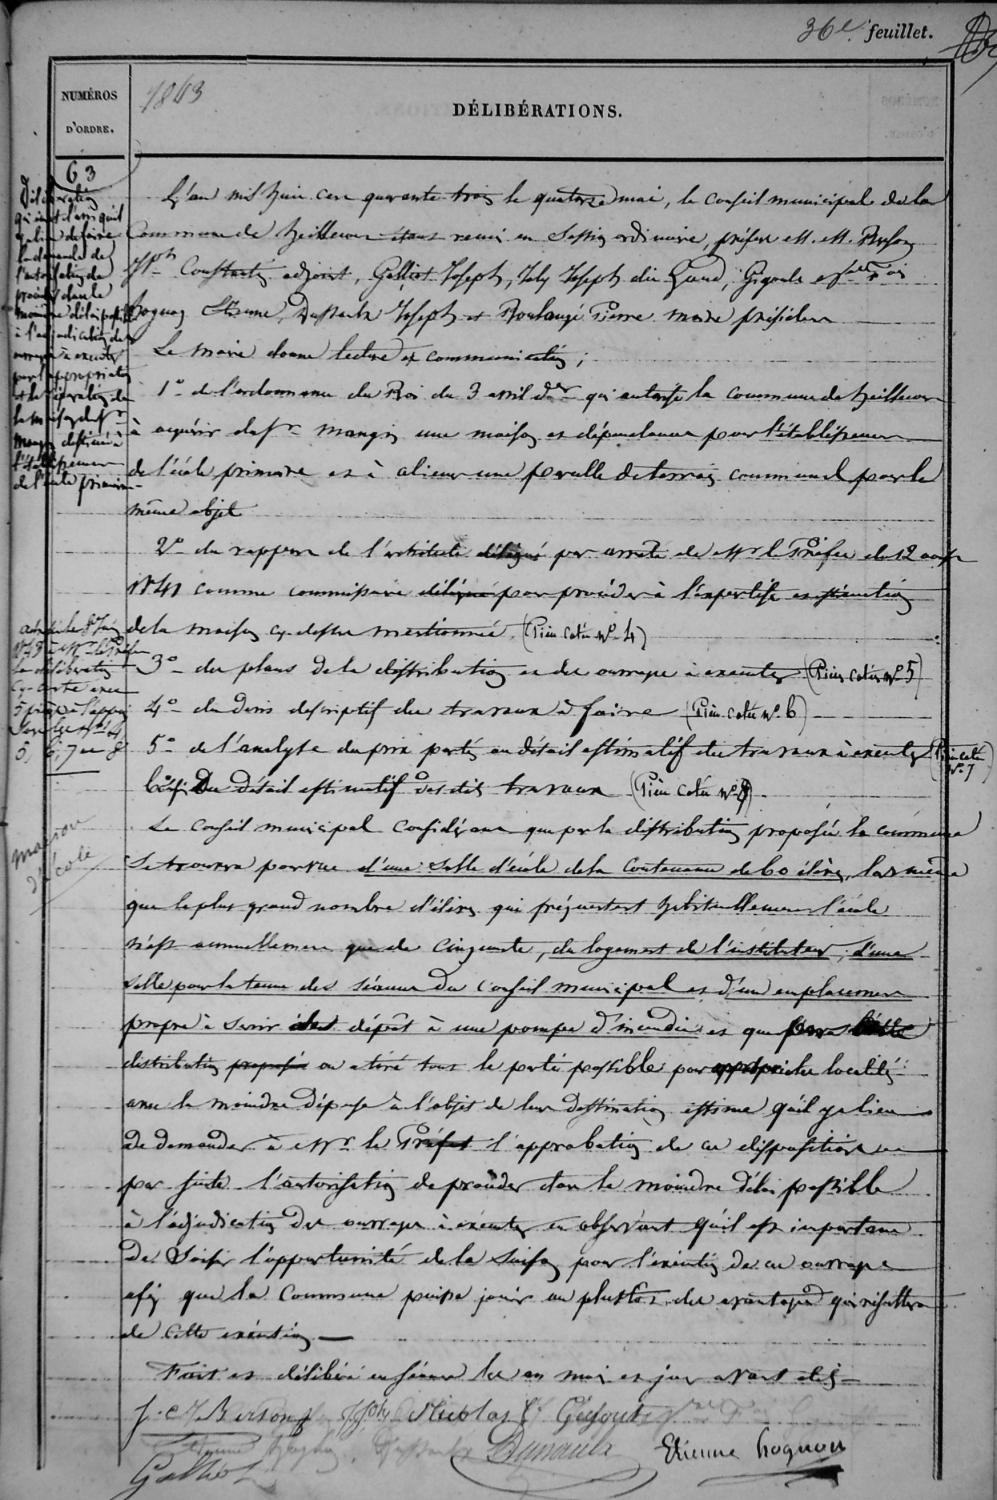 36e feuillet.
NUMÉROS
D'ORDRE.
1843
DÉLIBÉRATIONS.
63
Délibération
qu'il
y a lieu de faire
la demande de
l'autorisation de
procéder dans le
moindre délai possible
à l'adjudication des
ouvrages à exécuter
pour l'appropriation
et la réparation de
la maison du Sr
Mangin destinée à
l'établissement
de l'école primaire
L'an mil huit cent quarante trois le quatorze mai, le Conseil municipal de la
Commune de heillecour étant réuni en Session ordinaire, présens M. M.
Jph Constantin adjoint, Galliot Joseph, Joseph du Gigout
hognon Etienne, Joseph et Boulangé Pierre maire président
Le maire donne lecture et communication;
1o de l'ordonnance du Roi du 3 avril der qui autorise la commune de heillecour
à acquérir du Sr mangin une maison et dépendances pour l'établissement
de l'école primaire et à aliéner une parcelle de terrain communal pour le
même objet
2o du rapport de l'architecte délégué par arrêté de Mr le Préfet du 12 aout
1841 comme commissaire délégué pour procéder à l'expertise et estimation
de la maison cy-dessus mentionnée (Pièce cotée No 4)
3o des plans de la distribution et des ouvrages à exécuter (Pièce cotée No 5)
4o du devis descriptif des travaux à faire (Pièce cotée No 6)
5o de l'analyse du prix porté au détail estimatif des travaux à exécuter (Pièce cotée
No 7)
6o Du détail estimatif desdits travaux (Pièce cotée No 8)
5, 6, 7 et 8
maison
d'école
Le Conseil municipal Considérant que par la distribution proposée la commune
se trouvera pourvue d'une Salle d'école de la Contenance de 60 élèves, lors même
que le plus grand nombre d'élèves qui fréquentent habituellement l'école
n'est annuellement que de Cinquante, du logement de l'instituteur, d'une
Salle pour la tenue des séances du Conseil municipal et d'un emplacement
propre à Servir de dépôt à une pompe d'incendie et que
distribution proposée on a tiré tout le parti possible pour approprier localités
avec la moindre dépense à l'objet de leur destination estime qu'il y a lieu
de demander à Mr le Préfet l'approbation de ces dispositions et
par suite l'autorisation de procéder dans le moindre délai possible
à l'adjudication des ouvrages à exécuter en observant qu'il est important
De Saisir l'opportunité de la Saison pour l'exécution de ces ouvrages
afin que la Commune puisse jouir au plustôt des avantages qui résulteront
de cette exécution
Fait et délibéré en séance les an mois et jour avant dits
Nicolas Gigout
Galliot Etienne hognon